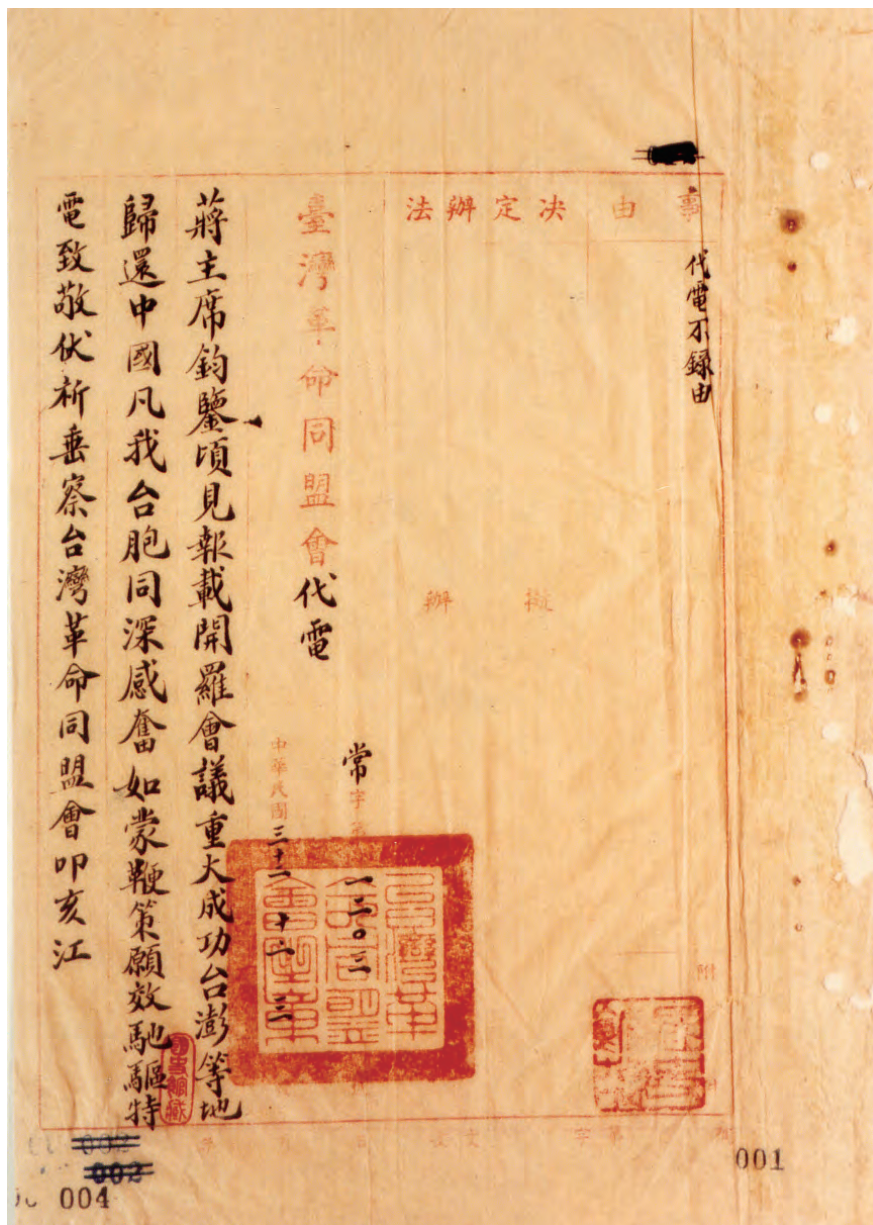 事由
代電不録由
决定辦法
擬辦
附
臺灣革命同盟會代電
常字第一二〇三
中華民國三十二 十二 三
蔣主席鈞鑒頃見報載開羅會議重大成功台澎等地
歸還中國凡我台胞同深感奮如蒙鞭策願效馳驅特
電致敬伏祈垂察台灣革命同盟會叩亥江
001
002
002
004